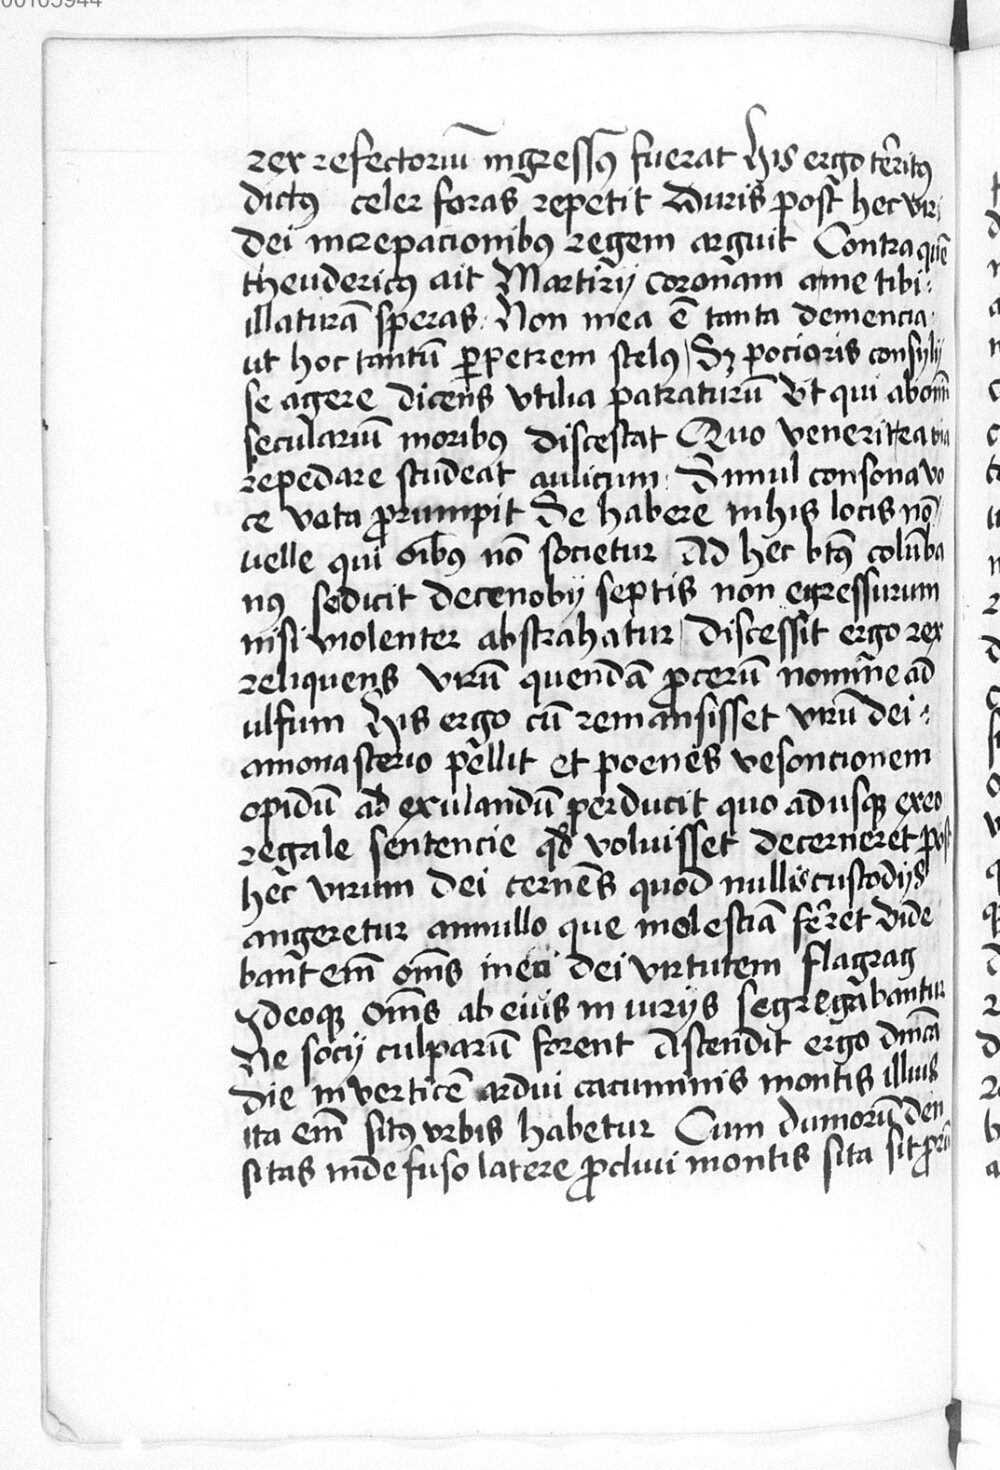 00105944
rex refectoriū ingressꝰ fuerat His ergo te᷒ritꝰ
dictꝰ celer foras repetit Duris post hec viri
dei increpacionibꝰ regem arguit Contra quē
theudericꝰ ait Martirij coronam a me tibi
illaturā speras Non mea ē tanta demencia
ut hoc tantū ꝑpetrem scelꝰ Sꝫ pocioris consylij
se agere dicens vtilia patraturū Vt qui ab om̄
secularium moribꝰ discescat Quo venerit ea via
repedare studeat aulicum Simul consona vo
ce vota ꝓrumpit Se habere in his locis nō
uelle qui oībꝰ nō societur Ad hec btꝰ colūba
nꝰ se dicit de cenobij septis non egressurum
nisi violenter abstrahatur discessit ergo rex
reliquens virū quendā ꝓcerū nomine ad
ulfum His ergo cū remansisset virū dei
a monasterio pellit et poenes vesoncionem
opidū ad exulandū perducit quo adusqꝫ ex eo
regale sentencie qd̄ voluisset decerneret post
hec virum dei cernens quod nullis custodijs
angeretur a nnullo que molestiā fe᷒ret Vide
bant em̄ om̄s in eo dei virtutem flagrag
Ideoqꝫ om̄s ab eius iniurijs segregabantur
Ne socij culparū forent Ascendit ergo dn̄ica
die in verticē ardui cacuminis montis illius
ita em̄ sitꝰ vrbis habetur Cum dumorū den
sitas in defuso latere ꝓclivi montis sita sit